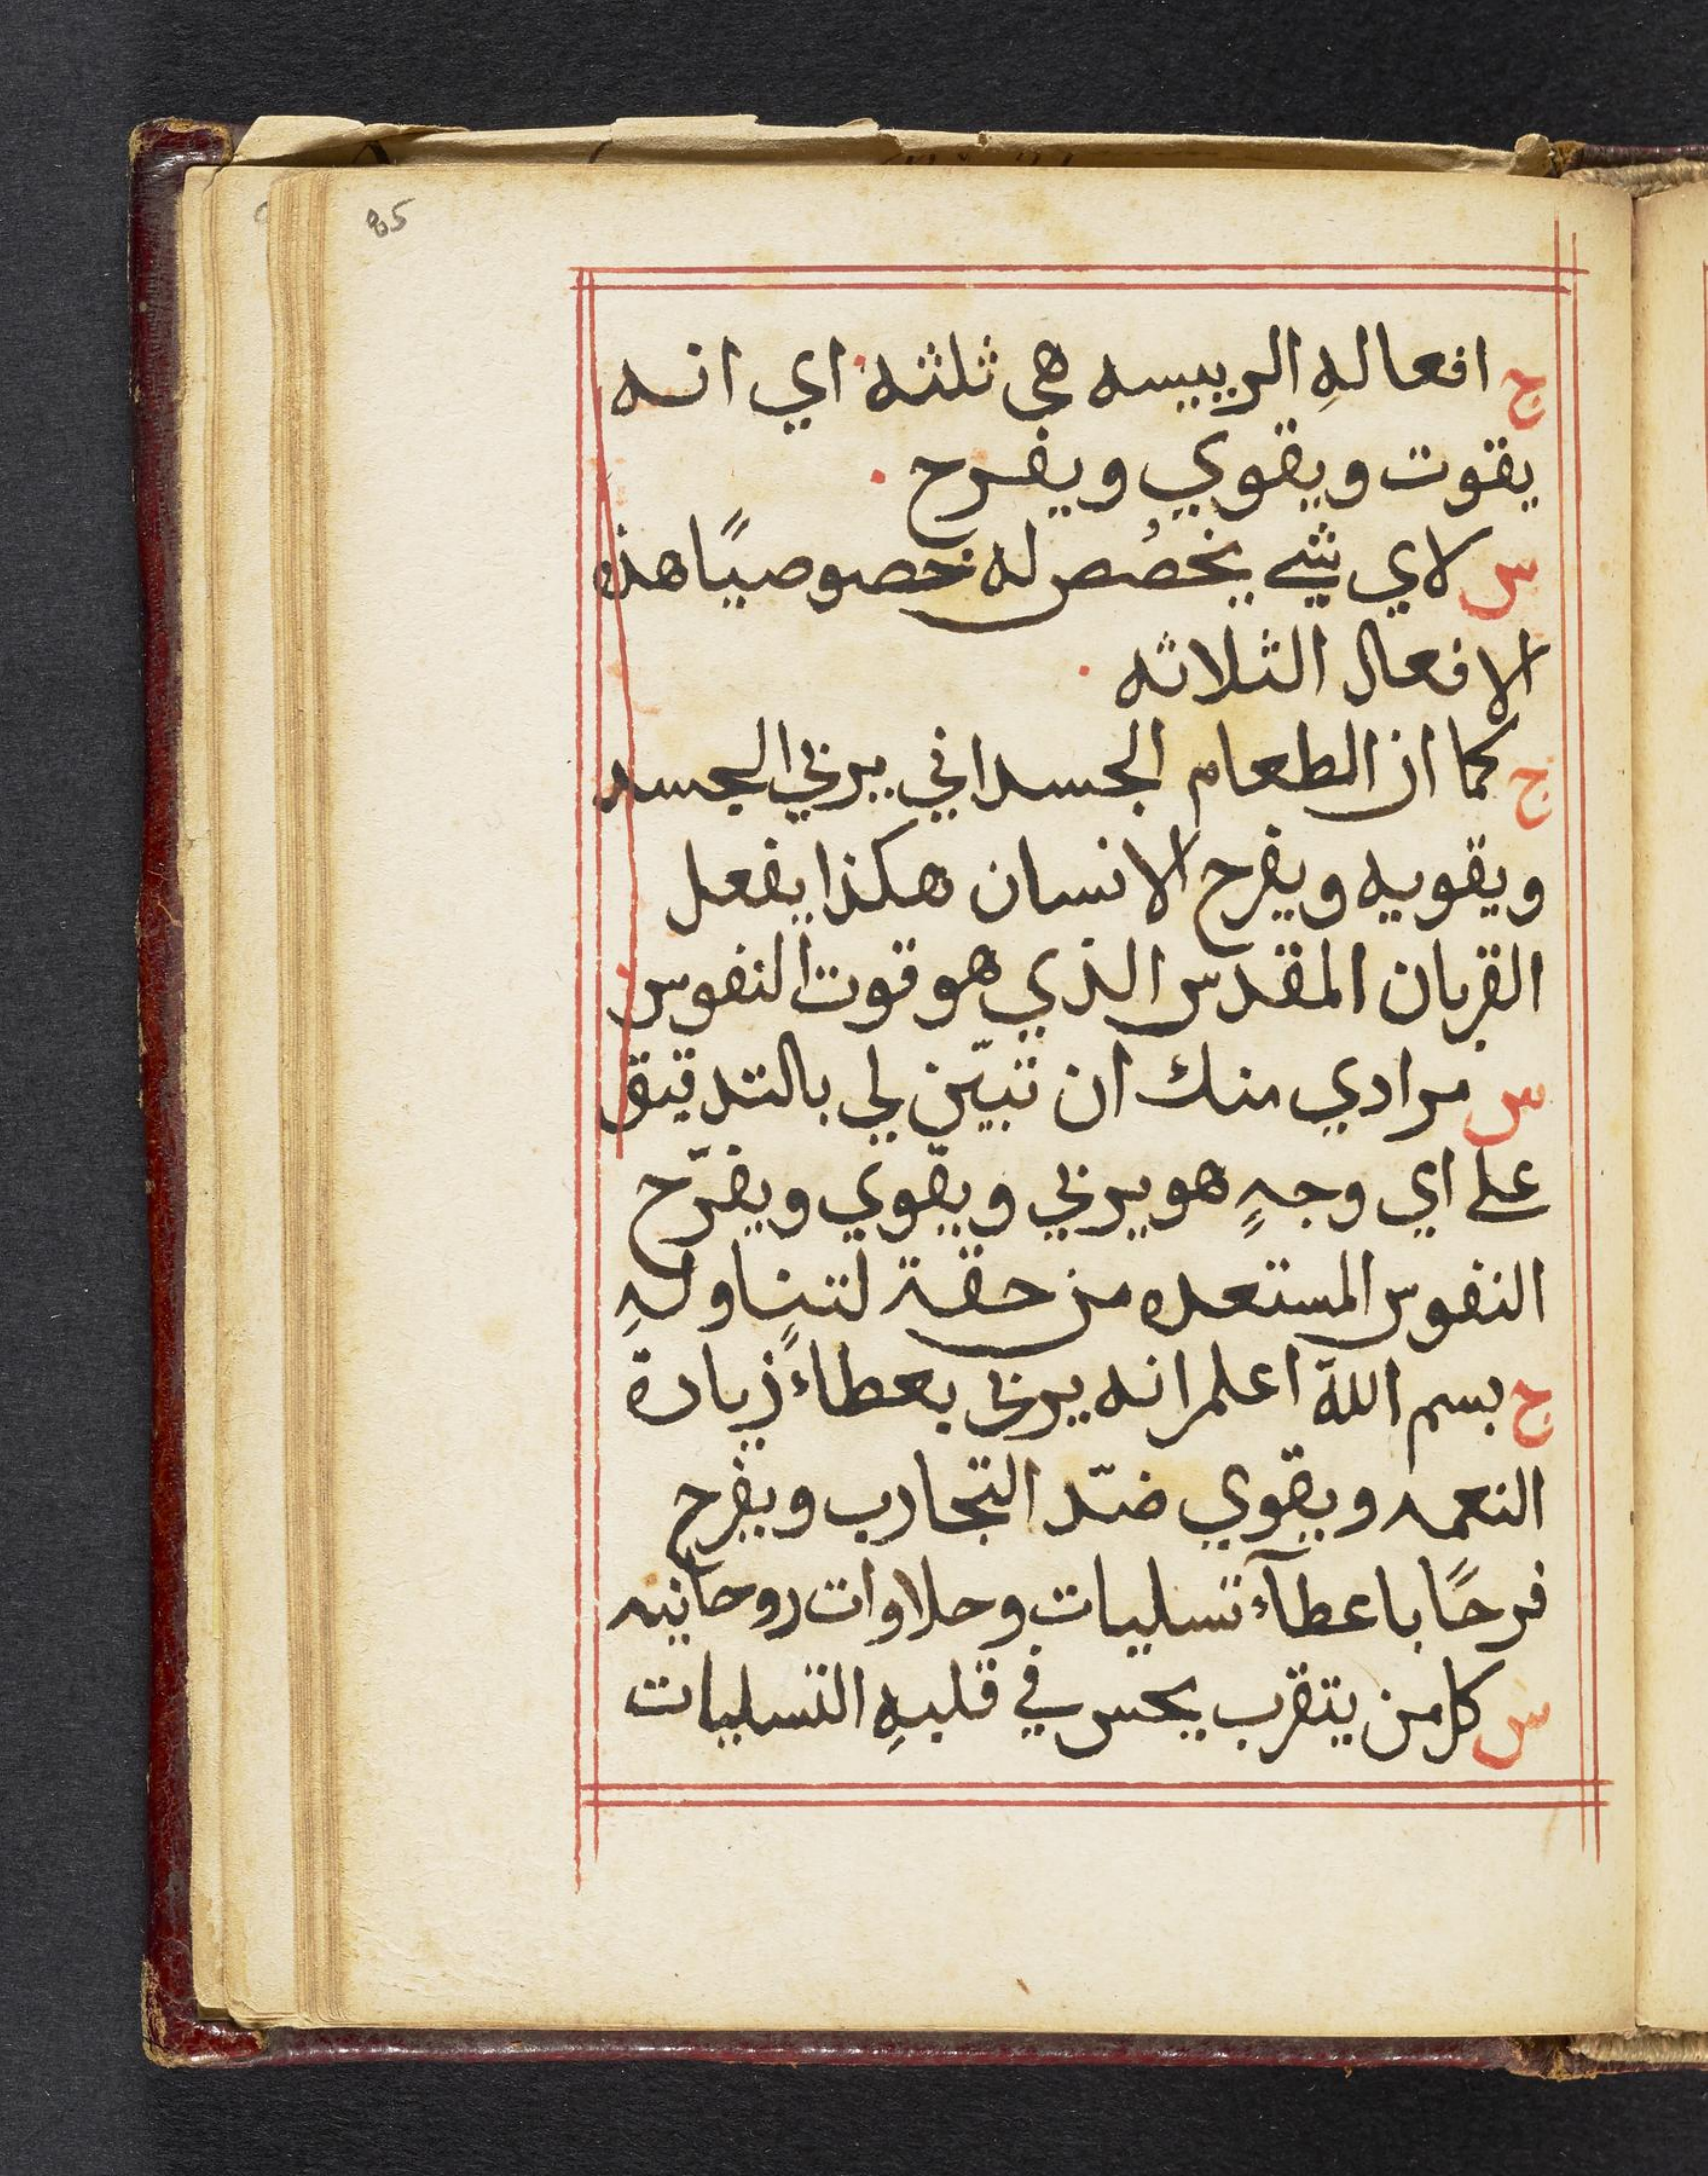 85
ج افعالهِ الرييسه هي ثلثه اي انه
يقوت ويقوي ويفرح
س لاي شي يخصُص له خصوصيًا هذه
الافعال الثلاثه
ج كما ان الطعام الجسداني يربي الجسد
ويقويه ويفرح الانسان هكذا يفعل
القربان المقدس الذي هو قوت النفوس
س مرادي منك ان تبيّن لي بالتدقيق
علي اي وجهٍ هو يربي ويقوي ويفرّح
النفوس المستعده من حقة لتناولهِ
ج بسم اللّه اعلم انه يربي بعطاءً زيادة
النعمه ويقوي ضدّ التجارب ويفرح
فرحًا باعطآء تسليات وحلاوات روحانيه
س كل من يتقرب يحس في قلبهِ التسليات